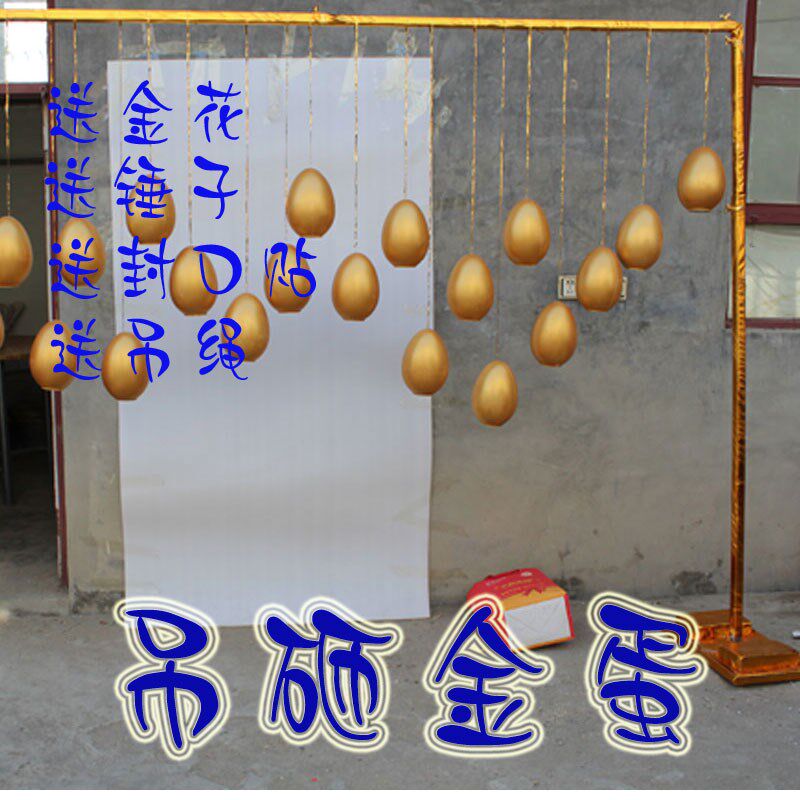 送金花
送锤子
送封口贴
送吊绳
吊砸金蛋